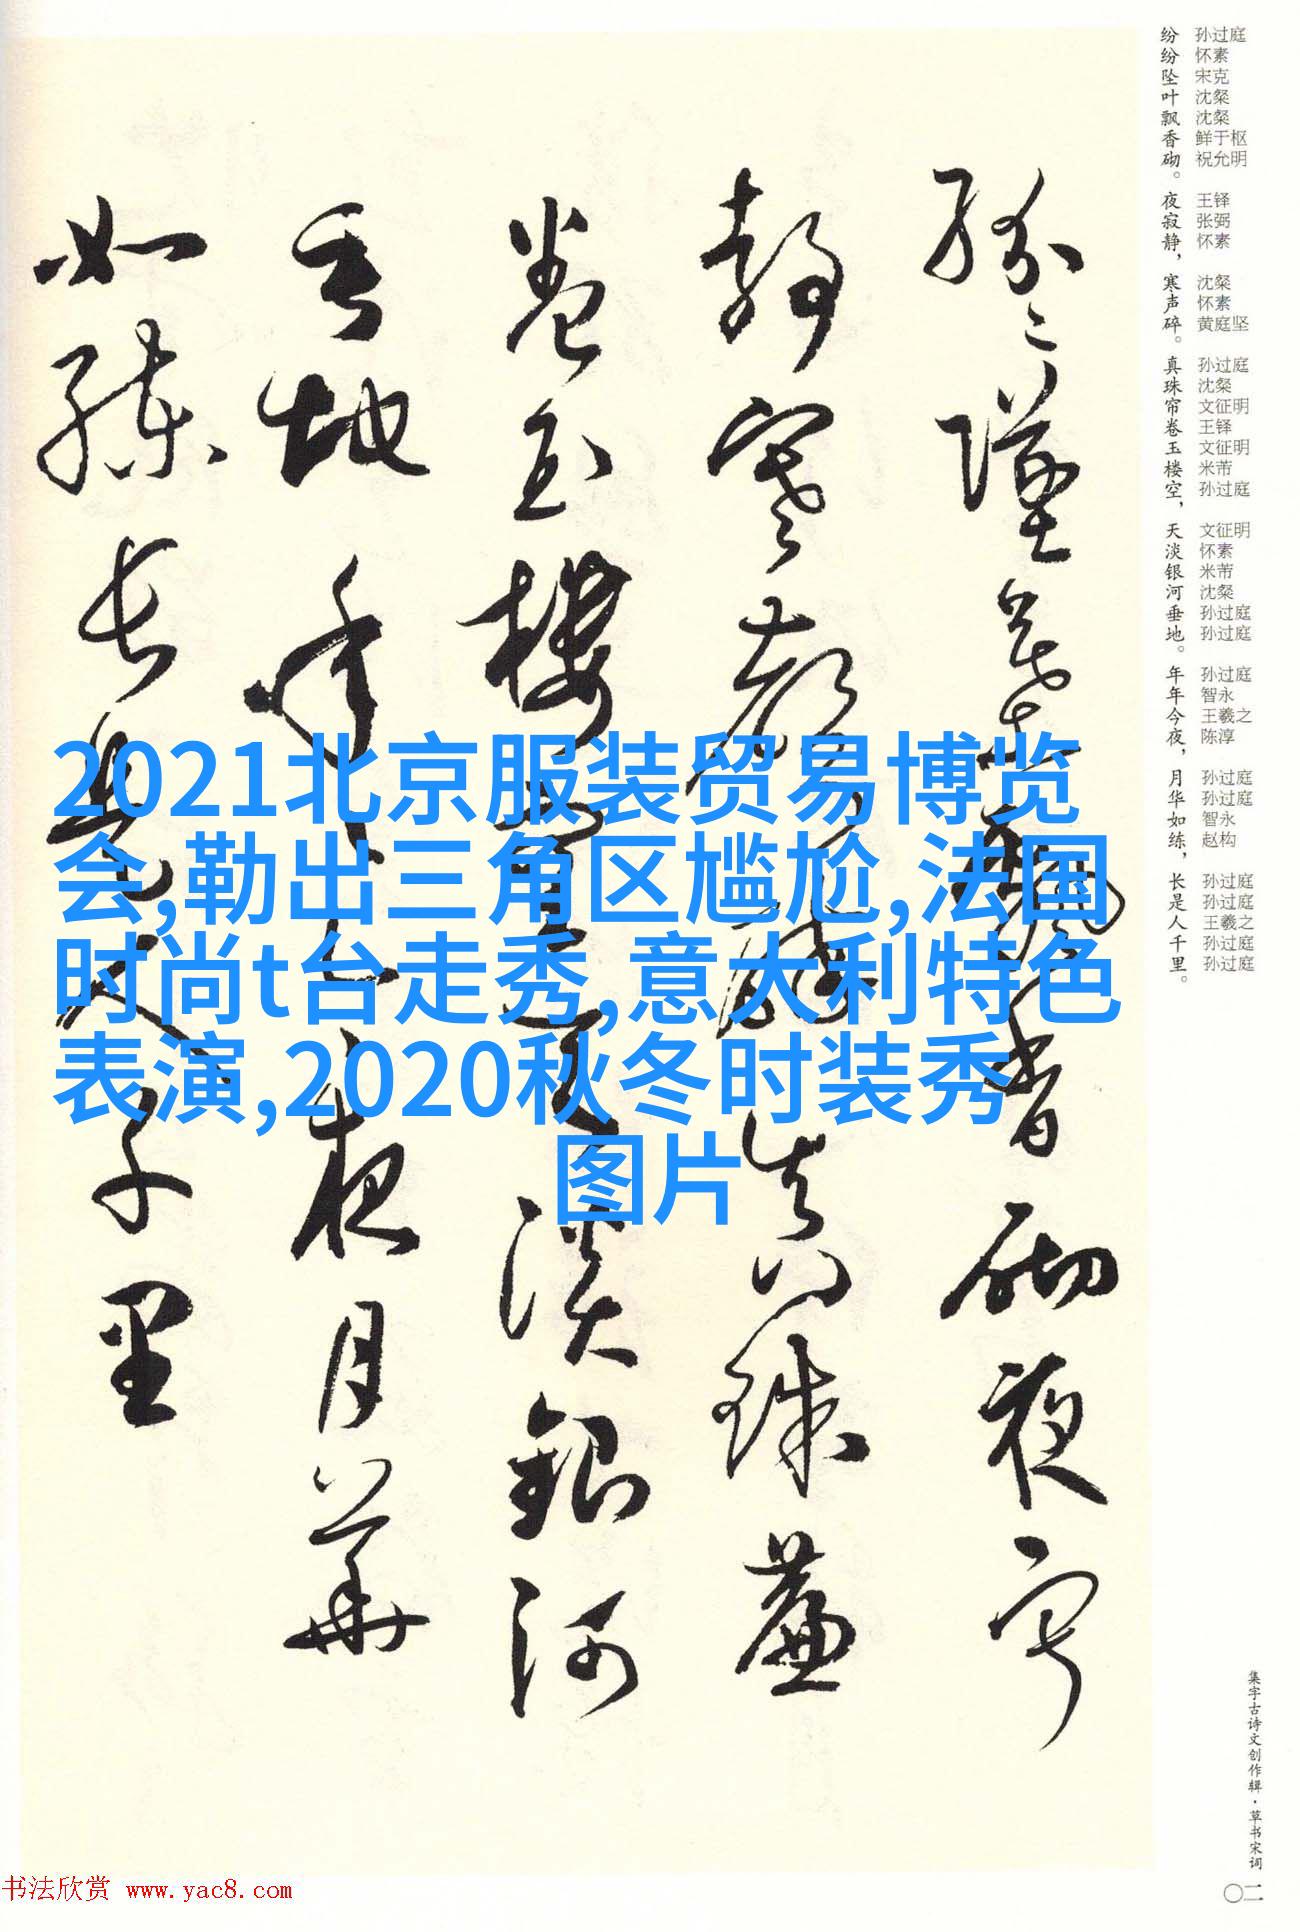 纷纷坠叶飘香砌。夜寂静，寒声碎。真珠帘卷玉楼空，天淡银河垂地。年年今夜，月华如练，长是人千里。
孙过庭
怀素
宋克
沈粲
沈粲
鲜于枢
祝允明
王铎
张弼
怀素
沈粲
怀素
黄庭坚
孙过庭
沈粲
文征明
王铎
文征明
米芾
孙过庭
文征明
怀素
米芾
沈粲
孙过庭
孙过庭
孙过庭
智永
王羲之
陈淳
孙过庭
孙过庭
智永
赵构
孙过庭
孙过庭
王羲之
孙过庭
孙过庭
2021北京服装贸易博览
会,勒出三角区尴尬,法国
时尚t台走秀,意大利特色
表演,2020秋冬时装秀
图片
集字古诗文创作辑·草书宋词
〇二
书法欣赏 www.yac8.com